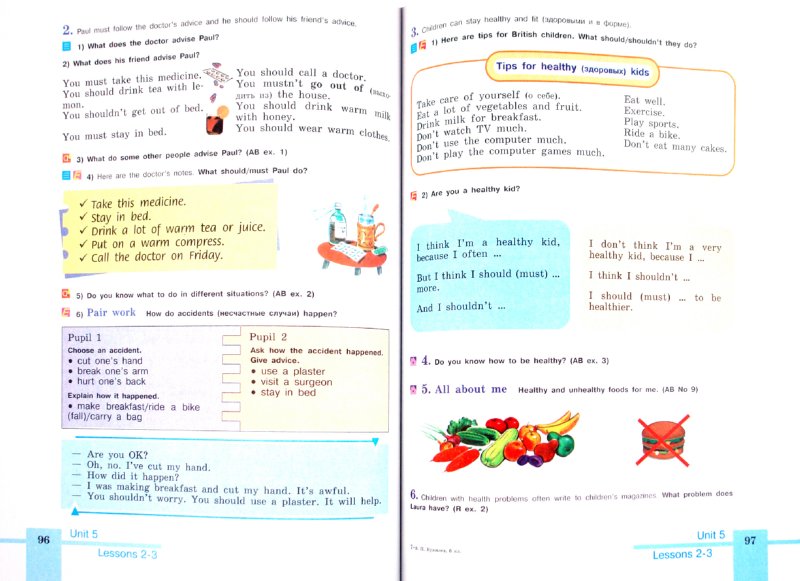 2. Paul must follow the doctor's advice and he should follow his friend's advice.
1) What does the doctor advise Paul?
2) What does his friend advise Paul?
You must take this medicine.
You should drink tea with le-
mon.
You shouldn't get out of bed.
You must stay in bed.
You should call a doctor.
You mustn't go out of (выхо-
дить из) the house.
You should drink warm milk
with honey.
You should wear warm clothes.
3) What do some other people advise Paul? (AB ex. 1)
4) Here are the doctor's notes. What should/must Paul do?
✓ Take this medicine.
✓ Stay in bed.
✓ Drink a lot of warm tea or juice.
✓ Put on a warm compress.
✓ Call the doctor on Friday.
5) Do you know what to do in different situations? (AB ex. 2)
6) Pair work How do accidents (несчастные случаи) happen?
Pupil 1
Choose an accident.
• cut one's hand
• break one's arm
• hurt one's back
Explain how it happened.
• make breakfast/ride a bike
(fall)/carry a bag
Pupil 2
Ask how the accident happened.
Give advice.
• use a plaster
• visit a surgeon
• stay in bed
— Are you OK?
— Oh, no. I've cut my hand.
— How did it happen?
— I was making breakfast and cut my hand. It's awful.
— You shouldn't worry. You should use a plaster. It will help.
96
Unit 5
Lessons 2-3
3. Children can stay healthy and fit (здоровыми и в форме).
1) Here are tips for British children. What should/shouldn't they do?
Tips for healthy (здоровых) kids
Take care of yourself (о себе).
Eat a lot of vegetables and fruit.
Drink milk for breakfast.
Don't watch TV much.
Don't use the computer much.
Don't play the computer games much.
Eat well.
Exercise.
Play sports.
Ride a bike.
Don't eat many cakes.
2) Are you a healthy kid?
I think I'm a healthy kid,
because I often ...
But I think I should (must) ...
more.
And I shouldn't ...
I don't think I'm a very
healthy kid, because I ...
I think I shouldn't ...
I should (must) ... to be
healthier.
4. Do you know how to be healthy? (AB ex. 3)
5. All about me Healthy and unhealthy foods for me. (AB No 9)
6. Children with health problems often write to children's magazines. What problem does
Laura have? (R ex. 2)
Unit 5
Lessons 2-3
97